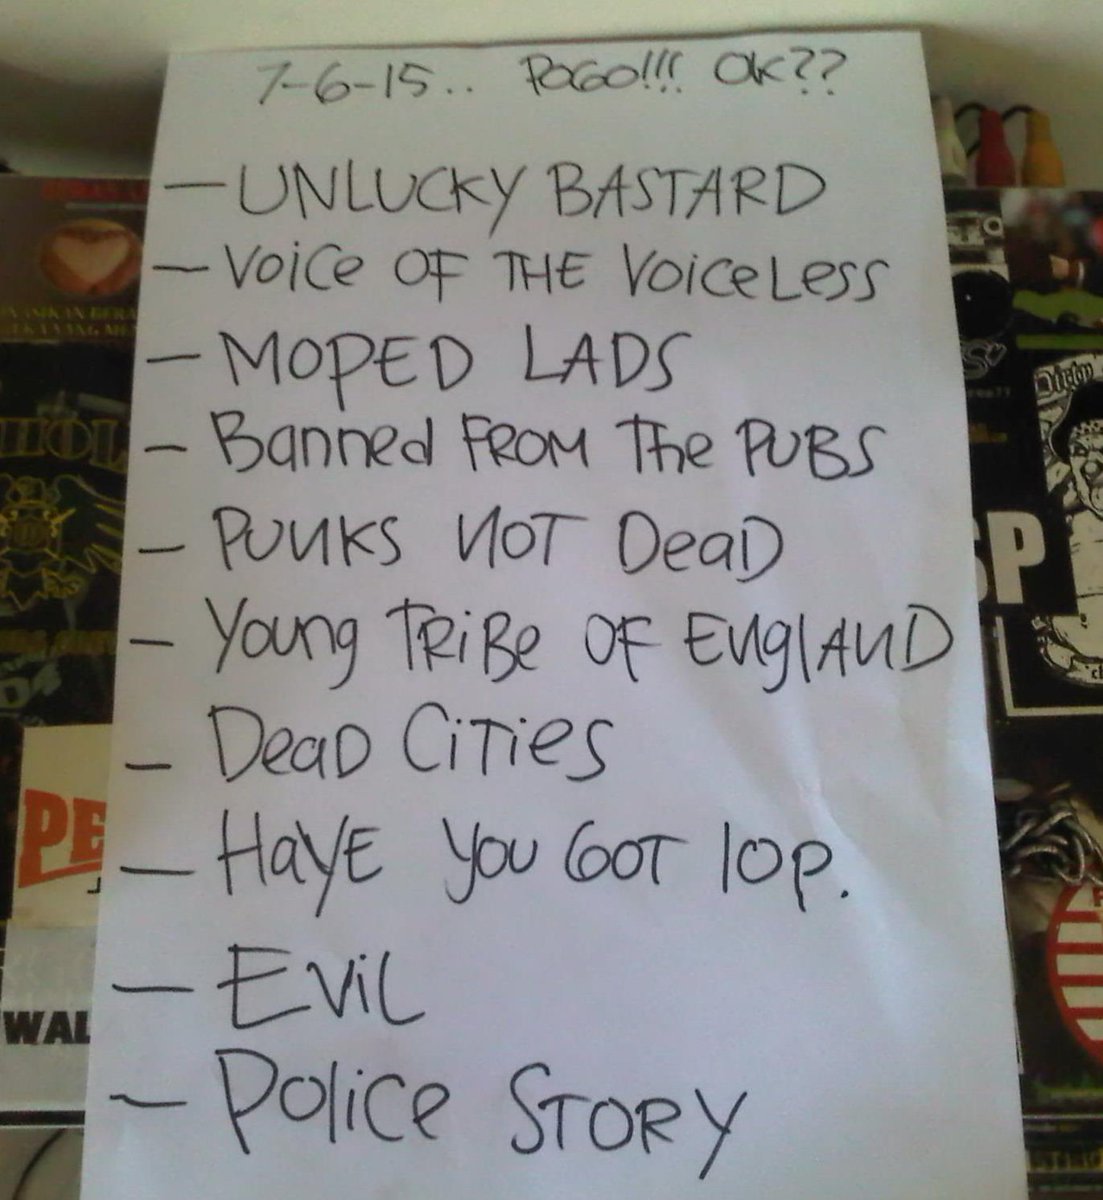 7-6-15.. POGO!!! OK??
— UNLUCKY BASTARD
— VOICE OF THE VOICELESS
— MOPED LADS
— Banned FROM The PUBS
— PUNKS NOT DeaD
— Young TRiBe OF ENglAND
— DeaD CiTies
— HAVE YOU GOT 10P.
— EViL
— Police STORY
Dirty
SP
PE
WAL